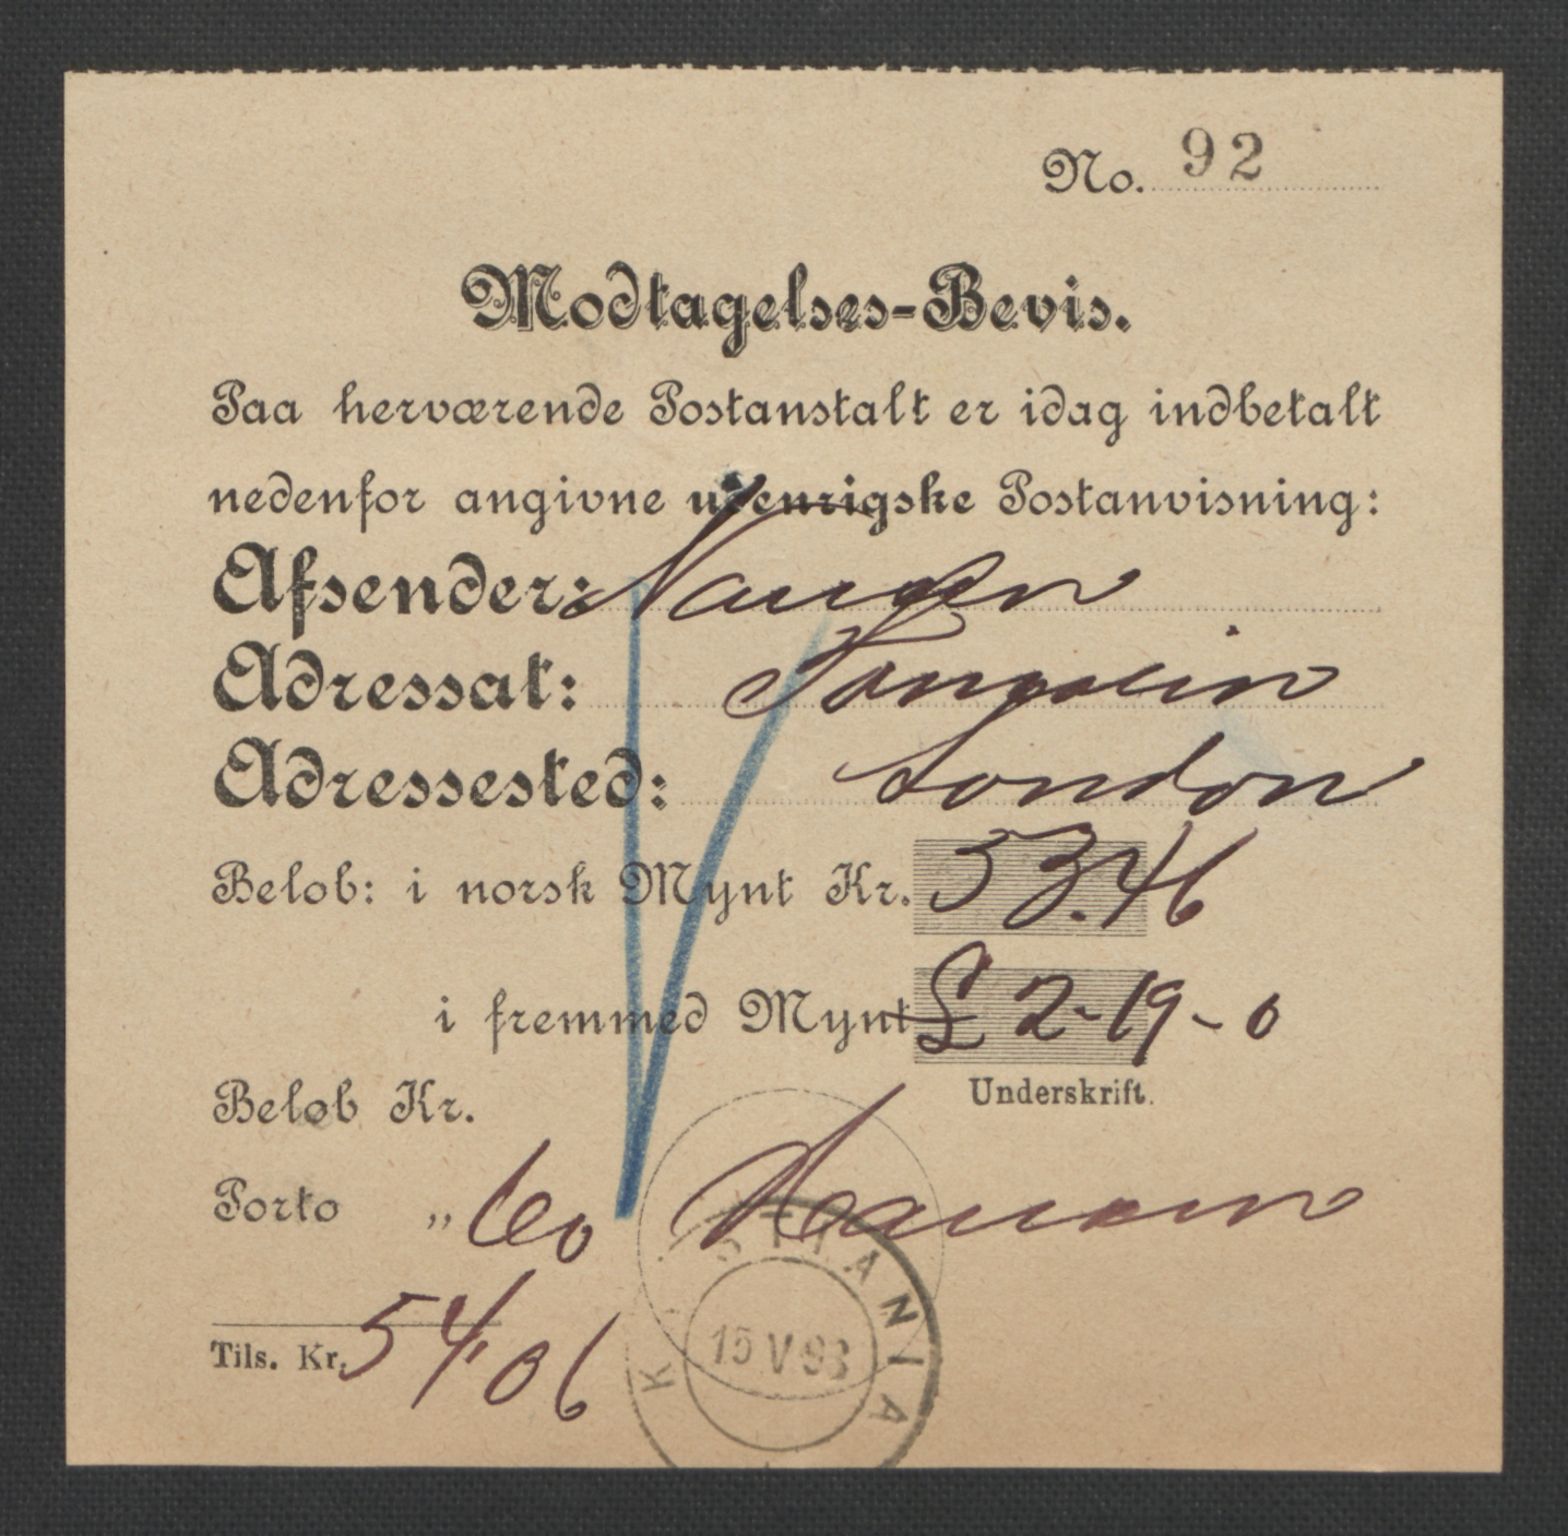 No. 92
Modtagelses-Bevis.
Paa herværende Postanstalt er idag indbetalt
nedenfor angivne utenrigske Postanvisning:
Afsender: Nansen
Adressat:
Adressested: London
Beløb: i norsk Mynt Kr. 53.46
i fremmed Mynt £ 2-19-0
Underskrift.
Beløb Kr.
Porto „ 60
Tils. Kr. 54,06
KRISTIANIA
15 V 93